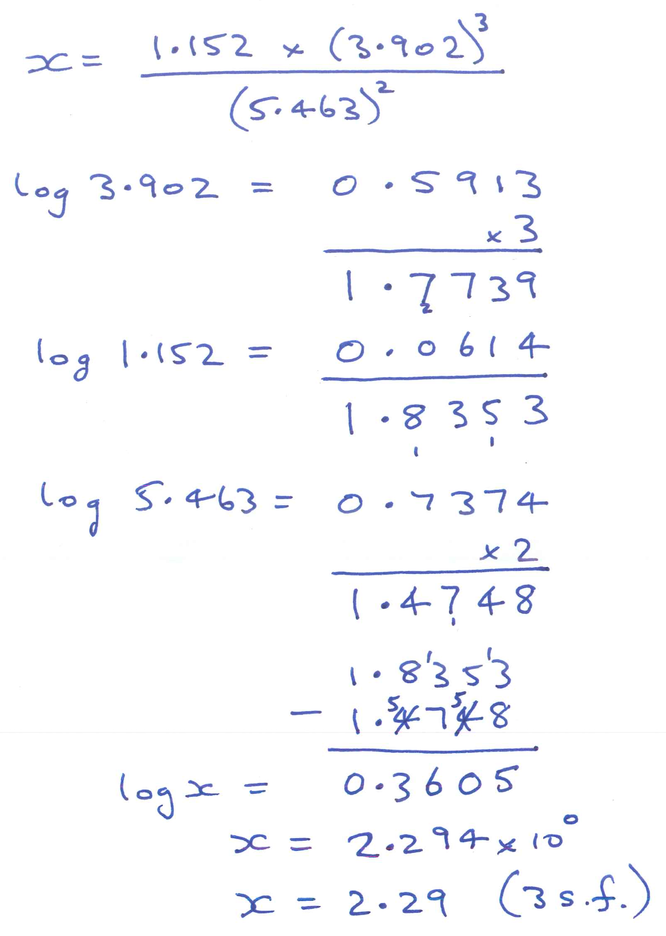 x = 1.152 × (3.902)³
(5.463)²
log 3.902 = 0.5913
× 3
1.7739
2
log 1.152 = 0.0614
1.8353
1 1
log 5.463 = 0.7374
× 2
1.4748
1
1.8'35'3
− 1.⁵4̸7⁵4̸8
log x = 0.3605
x = 2.294 × 10⁰
x = 2.29 (3 s.f.)